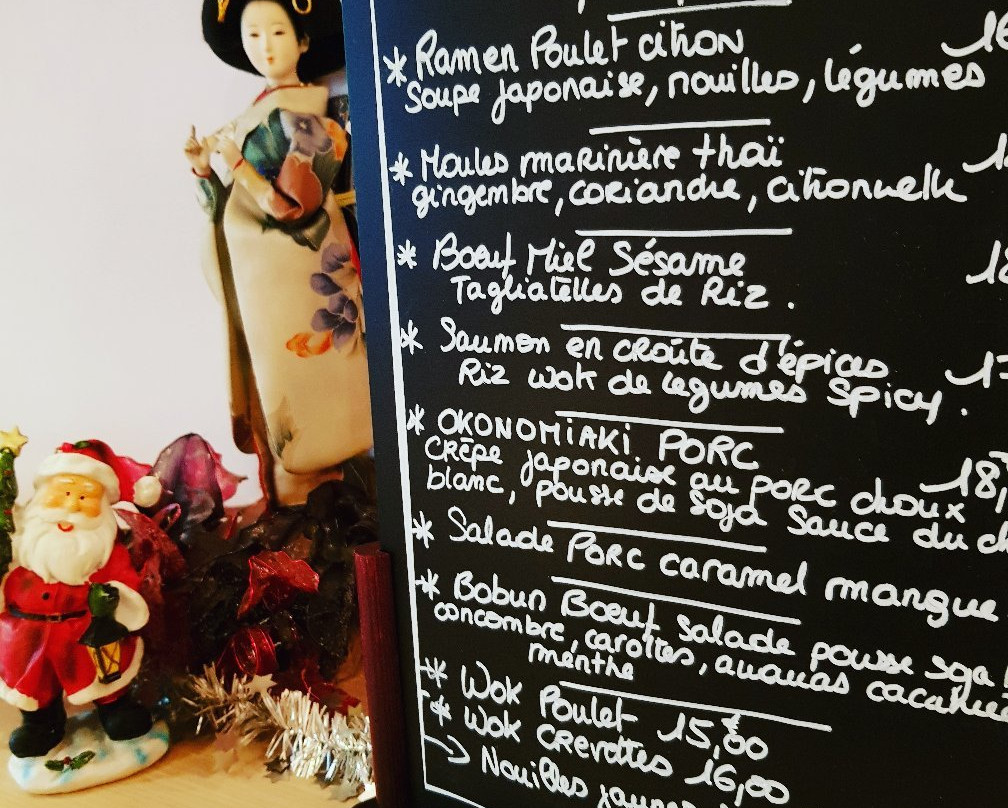 * Ramen Poulet citron
Soupe japonaise, nouilles, légumes
* Moules marinière thaï
gingembre, coriandre, citronnelle
* Bœuf Miel Sésame
Tagliatelles de Riz.
* Saumon en croûte d'épices
Riz wok de légumes Spicy.
* OKONOMiAKi PORC
Crêpe japonaise au porc choux 18,
blanc, pousse de soja Sauce du
* Salade Porc caramel mangue
* Bobun Bœuf Salade pousse soja
concombre, carottes, ananas
menthe
* Wok Poulet 15,€00
* Wok Crevettes 16,00
→ Nouilles jaunes